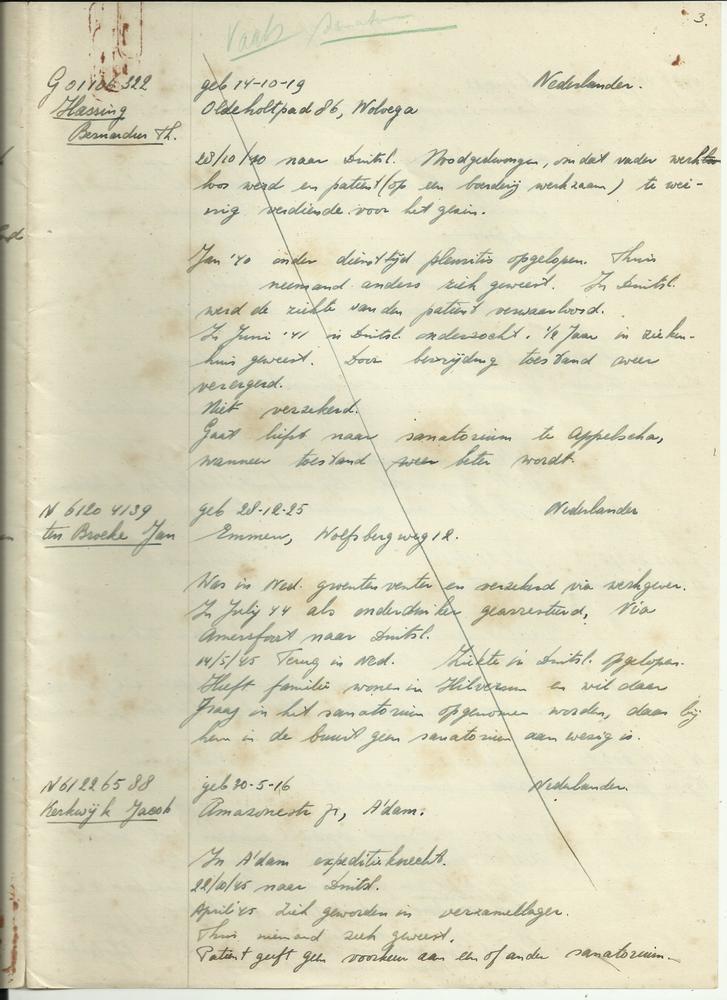 Vaals Sanator.
3.
G 01106322 geb 14-10-19 Nederlander.
Hassing Oldeholtpad 86, Wolvega
Bernardus Th.
28/10/40 naar Duitsl. Noodgedwongen, omdat vader werkloos
loos werd en patient (op een boerderij werkzaam) te wei-
nig verdiende voor het gezin.
Jan '40 onder diensttijd pleuritis opgelopen. Thuis
niemand anders ziek geweest. In Duitsl.
werd de ziekte van den patient verwaarloosd.
In Juni '41 in Duitsl. onderzocht. 1/2 Jaar in zieken-
huis geweest. Door bevrijding toestand weer
verergerd.
Niet verzekerd.
Gaat liefst naar sanatorium te Appelscha,
wanneer toestand weer beter wordt.
N 6120 4139 geb 28-12-25 Nederlander
ten Broeke Jan Emmen, Wolfsbergweg 12.
Was in Ned. groentenventer en verzekerd via werkgever.
In July 44 als onderduiker gearresteerd, via
Amersfoort naar Duitsl.
14/5/45 Terug in Ned. Ziekte in Duitsl. opgelopen.
Heeft familie wonen in Hilversum en wil daar
graag in het sanatorium opgenomen worden, daar bij
hem in de buurt geen sanatorium aanwezig is.
N 6122 65 88 geb 30-5-16 Nederlander.
Kerkwijk Jacob Amazonestr , A'dam.
In A'dam expeditieknecht.
22/ /45 naar Duitsl.
April '45 Ziek geworden in verzamellager.
Thuis niemand ziek geweest.
Patient geeft geen voorkeur aan een of ander sanatorium.